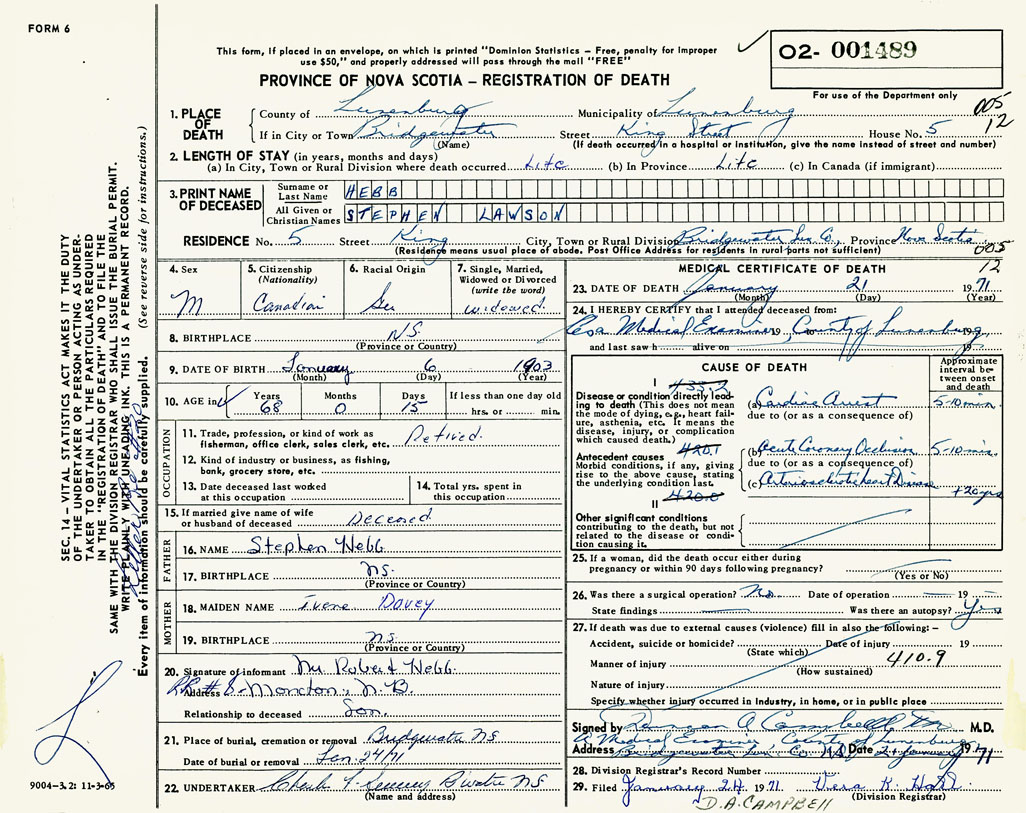 FORM 6
This form, if placed in an envelope, on which is printed "Dominion Statistics – Free, penalty for improper
use $50," and properly addressed will pass through the mail "FREE"
PROVINCE OF NOVA SCOTIA – REGISTRATION OF DEATH
02- 001489
For use of the Department only
005
12
1. PLACE OF DEATH
County of Lunenburg Municipality of Lunenburg
If in City or Town Bridgewater Street King Street House No. 5
(Name) (If death occurred in a hospital or institution, give the name instead of street and number)
2. LENGTH OF STAY (in years, months and days)
(a) In City, Town or Rural Division where death occurred Life (b) In Province Life (c) In Canada (if immigrant)
3. PRINT NAME OF DECEASED
Surname or Last Name HEBB
All Given or Christian Names STEPHEN LAWSON
RESIDENCE No. 5 Street King City, Town or Rural Division Bridgewater Lun Co. Province Nova Scotia
(Residence means usual place of abode. Post Office Address for residents in rural parts not sufficient)
005
12
4. Sex
M
5. Citizenship
(Nationality)
Canadian
6. Racial Origin
7. Single, Married,
Widowed or Divorced
(write the word)
widowed
8. BIRTHPLACE NS
(Province or Country)
9. DATE OF BIRTH January 6 1903
(Month) (Day) (Year)
10. AGE in
Years Months Days If less than one day old
68 0 15 hrs. or min.
OCCUPATION
11. Trade, profession, or kind of work as
fisherman, office clerk, sales clerk, etc. Retired.
12. Kind of industry or business, as fishing,
bank, grocery store, etc.
13. Date deceased last worked
at this occupation
14. Total yrs. spent in
this occupation
15. If married give name of wife
or husband of deceased Deceased
FATHER
16. NAME Stephen Hebb
17. BIRTHPLACE NS.
(Province or Country)
MOTHER
18. MAIDEN NAME Irene Dovey
19. BIRTHPLACE NS
(Province or Country)
20. Signature of informant Mr. Robert Hebb.
Address RR # 8 Moncton, N.B.
Relationship to deceased Son.
21. Place of burial, cremation or removal Bridgewater NS
Date of burial or removal Jan. 24/71
22. UNDERTAKER B'water NS
(Name and address)
MEDICAL CERTIFICATE OF DEATH
23. DATE OF DEATH January 21 1971
(Month) (Day) (Year)
24. I HEREBY CERTIFY that I attended deceased from:
as a Medical Examiner 19 County of Lunenburg 19
and last saw h alive on 19
CAUSE OF DEATH
Approximate
interval be-
tween onset
and death
I
Disease or condition directly lead-
ing to death (This does not mean
the mode of dying, e.g., heart fail-
ure, asthenia, etc. It means the
disease, injury, or complication
which caused death.)
(a) Cardiac Arrest 5-10 min.
due to (or as a consequence of)
420.1
Antecedent causes
Morbid conditions, if any, giving
rise to the above cause, stating
the underlying condition last.
(b) Acute Coronary Occlusion 5-10 min.
due to (or as a consequence of)
(c) Arteriosclerotic Heart Disease +20 yrs
II
420.0
Other significant conditions
contributing to the death, but not
related to the disease or condi-
tion causing it.
25. If a woman, did the death occur either during
pregnancy or within 90 days following pregnancy?
(Yes or No)
26. Was there a surgical operation? No Date of operation 19
State findings Was there an autopsy? Yes
27. If death was due to external causes (violence) fill in also the following: –
Accident, suicide or homicide? Date of injury 19
(State which)
410.9
Manner of injury
(How sustained)
Nature of injury
Specify whether injury occurred in industry, in home, or in public place
Signed by Duncan A Campbell M.D.
A Medical Examiner County of Lunenburg
Address Bridgewater Lun. Co. N.S. Date 21 January 1971
28. Division Registrar's Record Number
29. Filed January 24 1971. Vera K.
(Division Registrar)
D.A. CAMPBELL
SEC. 14 – VITAL STATISTICS ACT MAKES IT THE DUTY
OF THE UNDERTAKER OR PERSON ACTING AS UNDER-
TAKER TO OBTAIN ALL THE PARTICULARS REQUIRED
IN THE "REGISTRATION OF DEATH" AND TO FILE THE
SAME WITH THE DIVISION REGISTRAR WHO SHALL ISSUE THE BURIAL PERMIT.
WRITE PLAINLY WITH UNFADING INK. THIS IS A PERMANENT RECORD.
Every item of information should be carefully supplied. (See reverse side for instructions.)
9004-3.2: 11-3-65